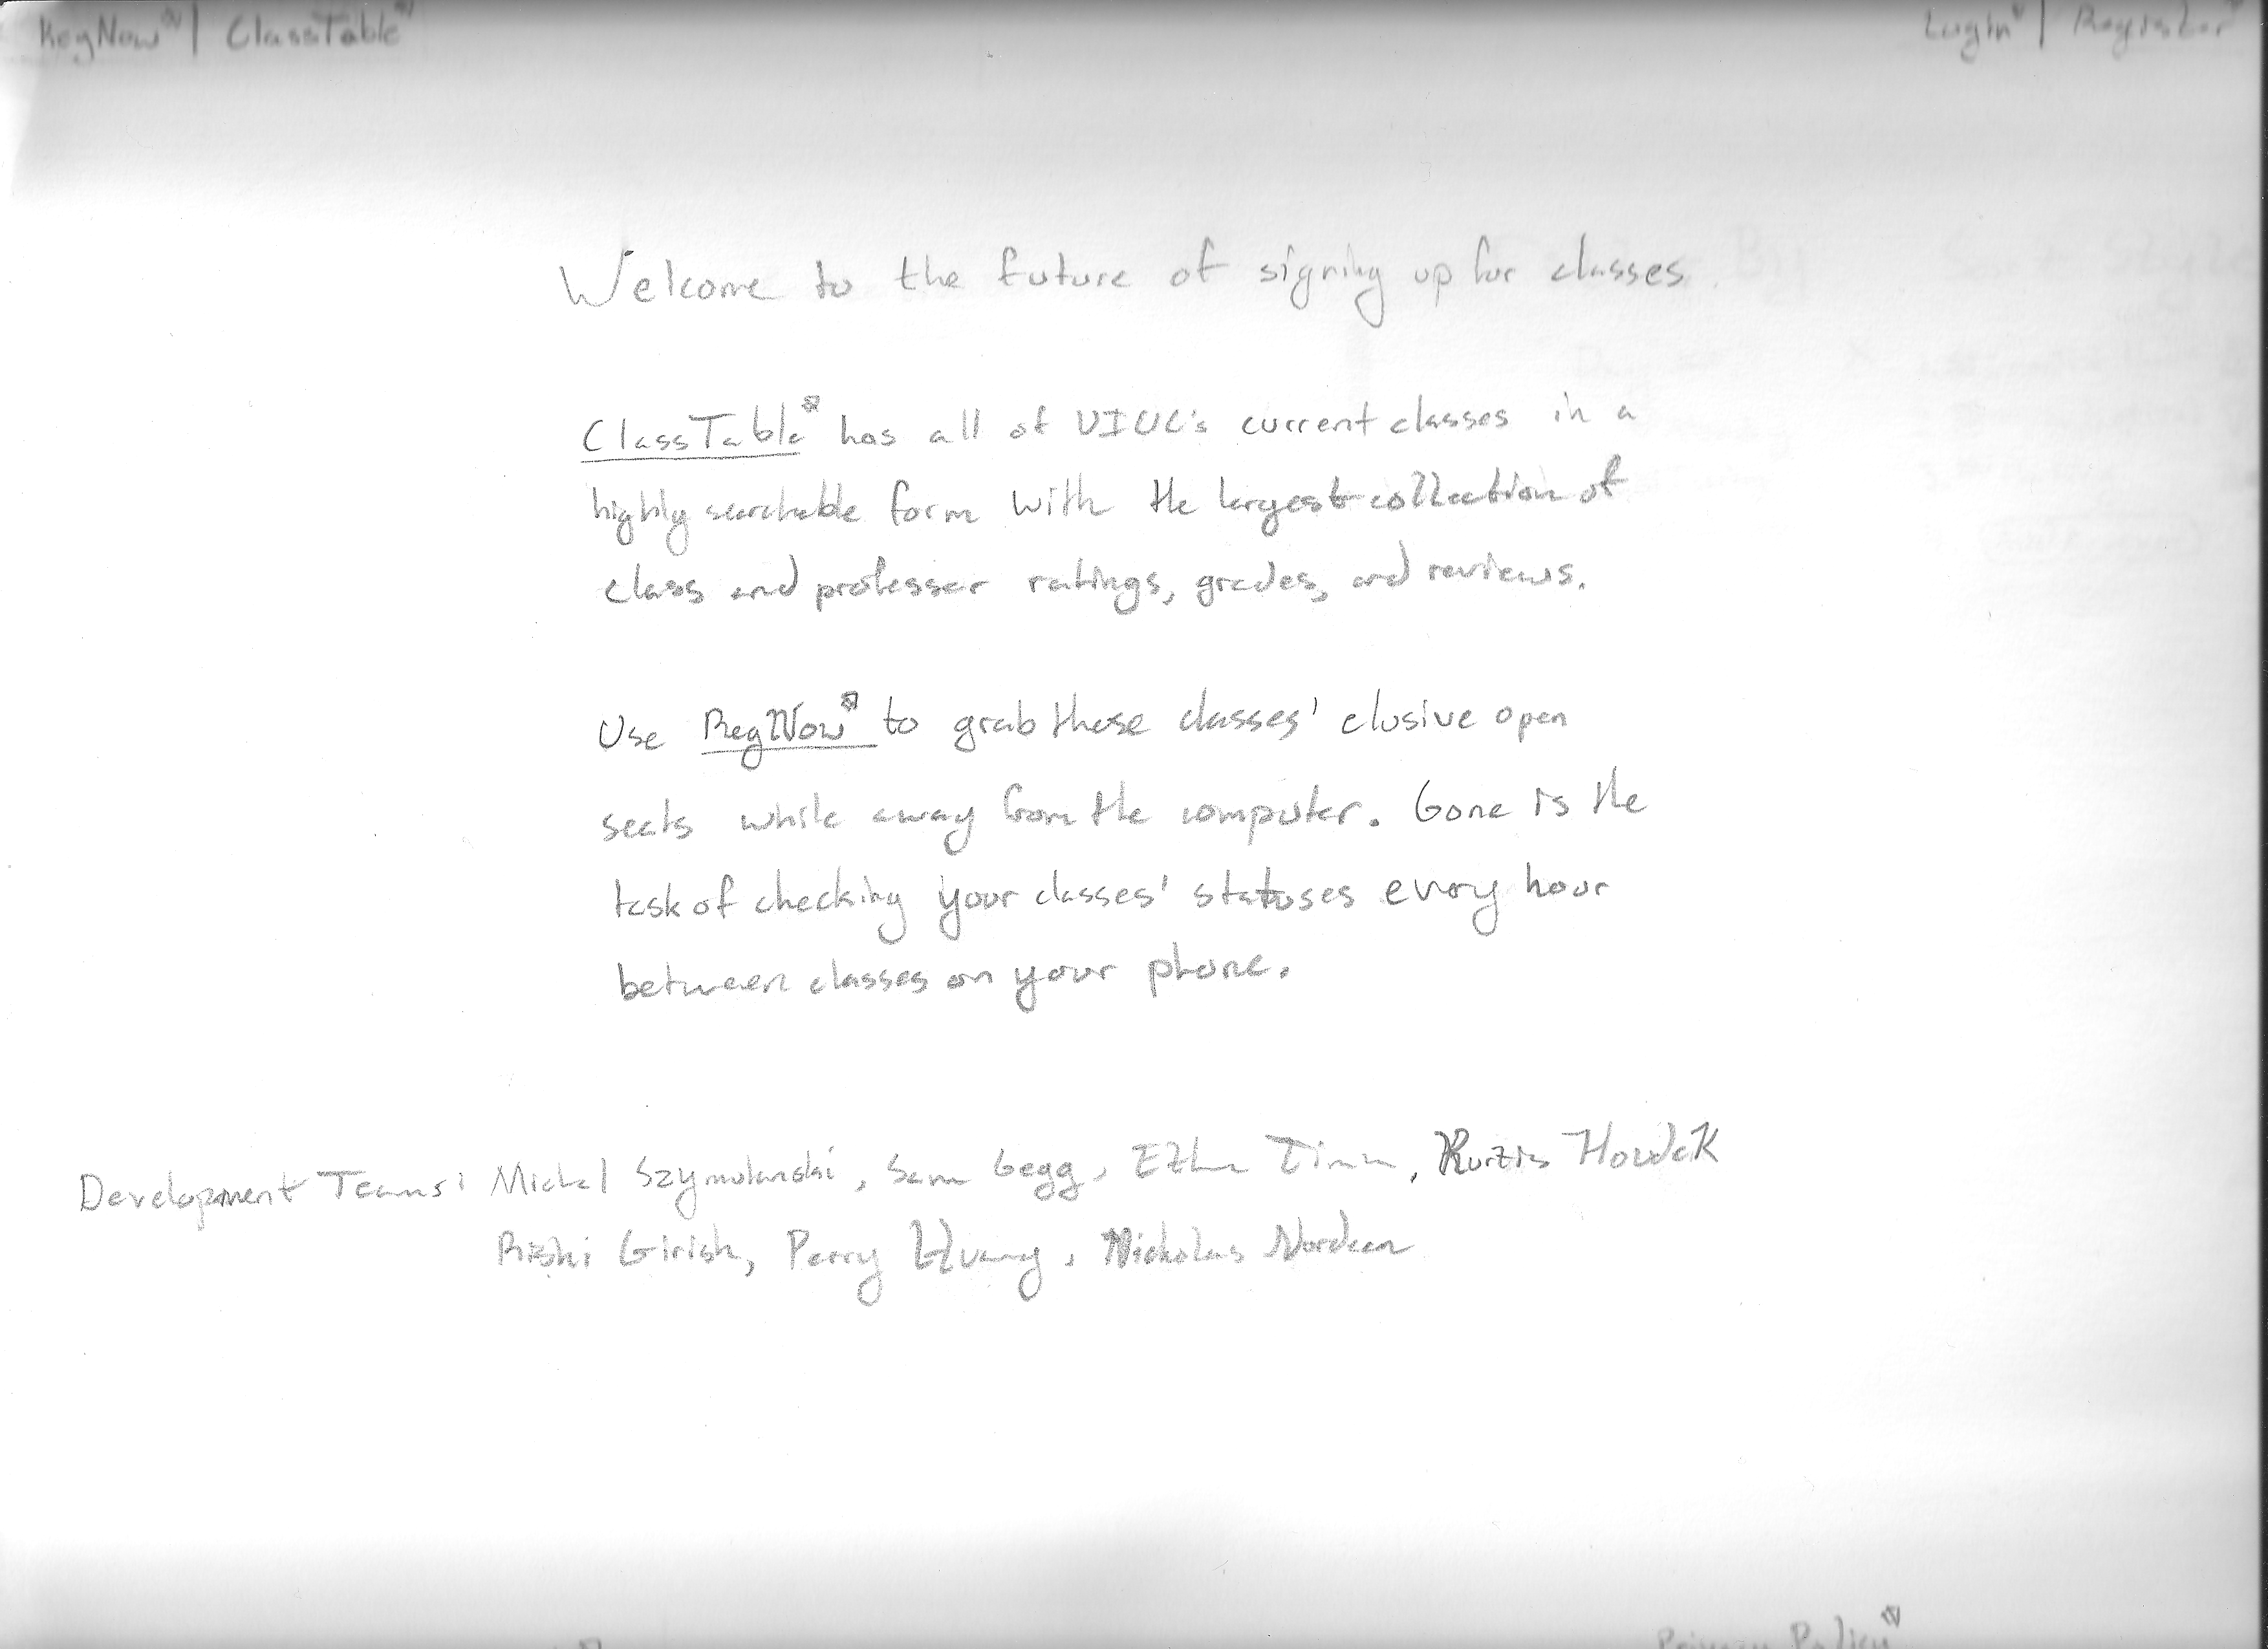 RegNow | ClassTable
Login | Register
Welcome to the future of signing up for classes.
ClassTable has all of UIUC's current classes in a
highly searchable form with the largest collection of
class and professer ratings, grades, and reviews.
Use RegNow to grab these classes' elusive open
seats while away from the computer. Gone is the
task of checking your classes' statuses every hour
between classes on your phone.
Development Teams: Szymolanski, Sam Gegg,
Rishi Girish, Perry Huang, Nicholas Nordeen
Privacy Policy